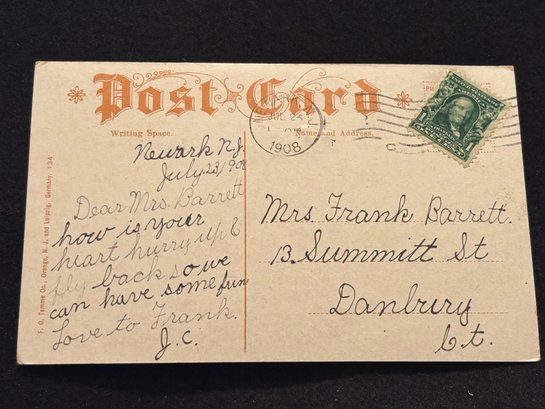 Post Card
Writing Space.
Name and Address.
JUL 24
1908
Newark N.J.
July 23/1908
Dear Mrs. Barrett
how is your
heart hurry up &
fly back so we
can have some fun
Love to Frank.
J.C.
Mrs. Frank Barrett.
13 Summitt St
Danbury
Ct.
F. G. Temme Co., Orange, N. J. and Leipzig, Germany. 134